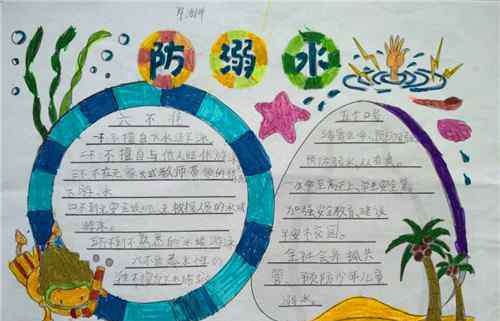 防溺水
六不准
一不擅自下水游泳
二不擅自与他人结伴游泳
三不在无家长或教师带领的情况
下游泳
四不到无安全设施、无救援人员的水域
游泳
五不到不熟悉的水域游泳
六不熟悉水性的
五个口号
预防溺水，从
生命至高无上，安全
加强安全教育，建设
平安校园。
全社会齐抓共
管、预防少年儿童
溺水。